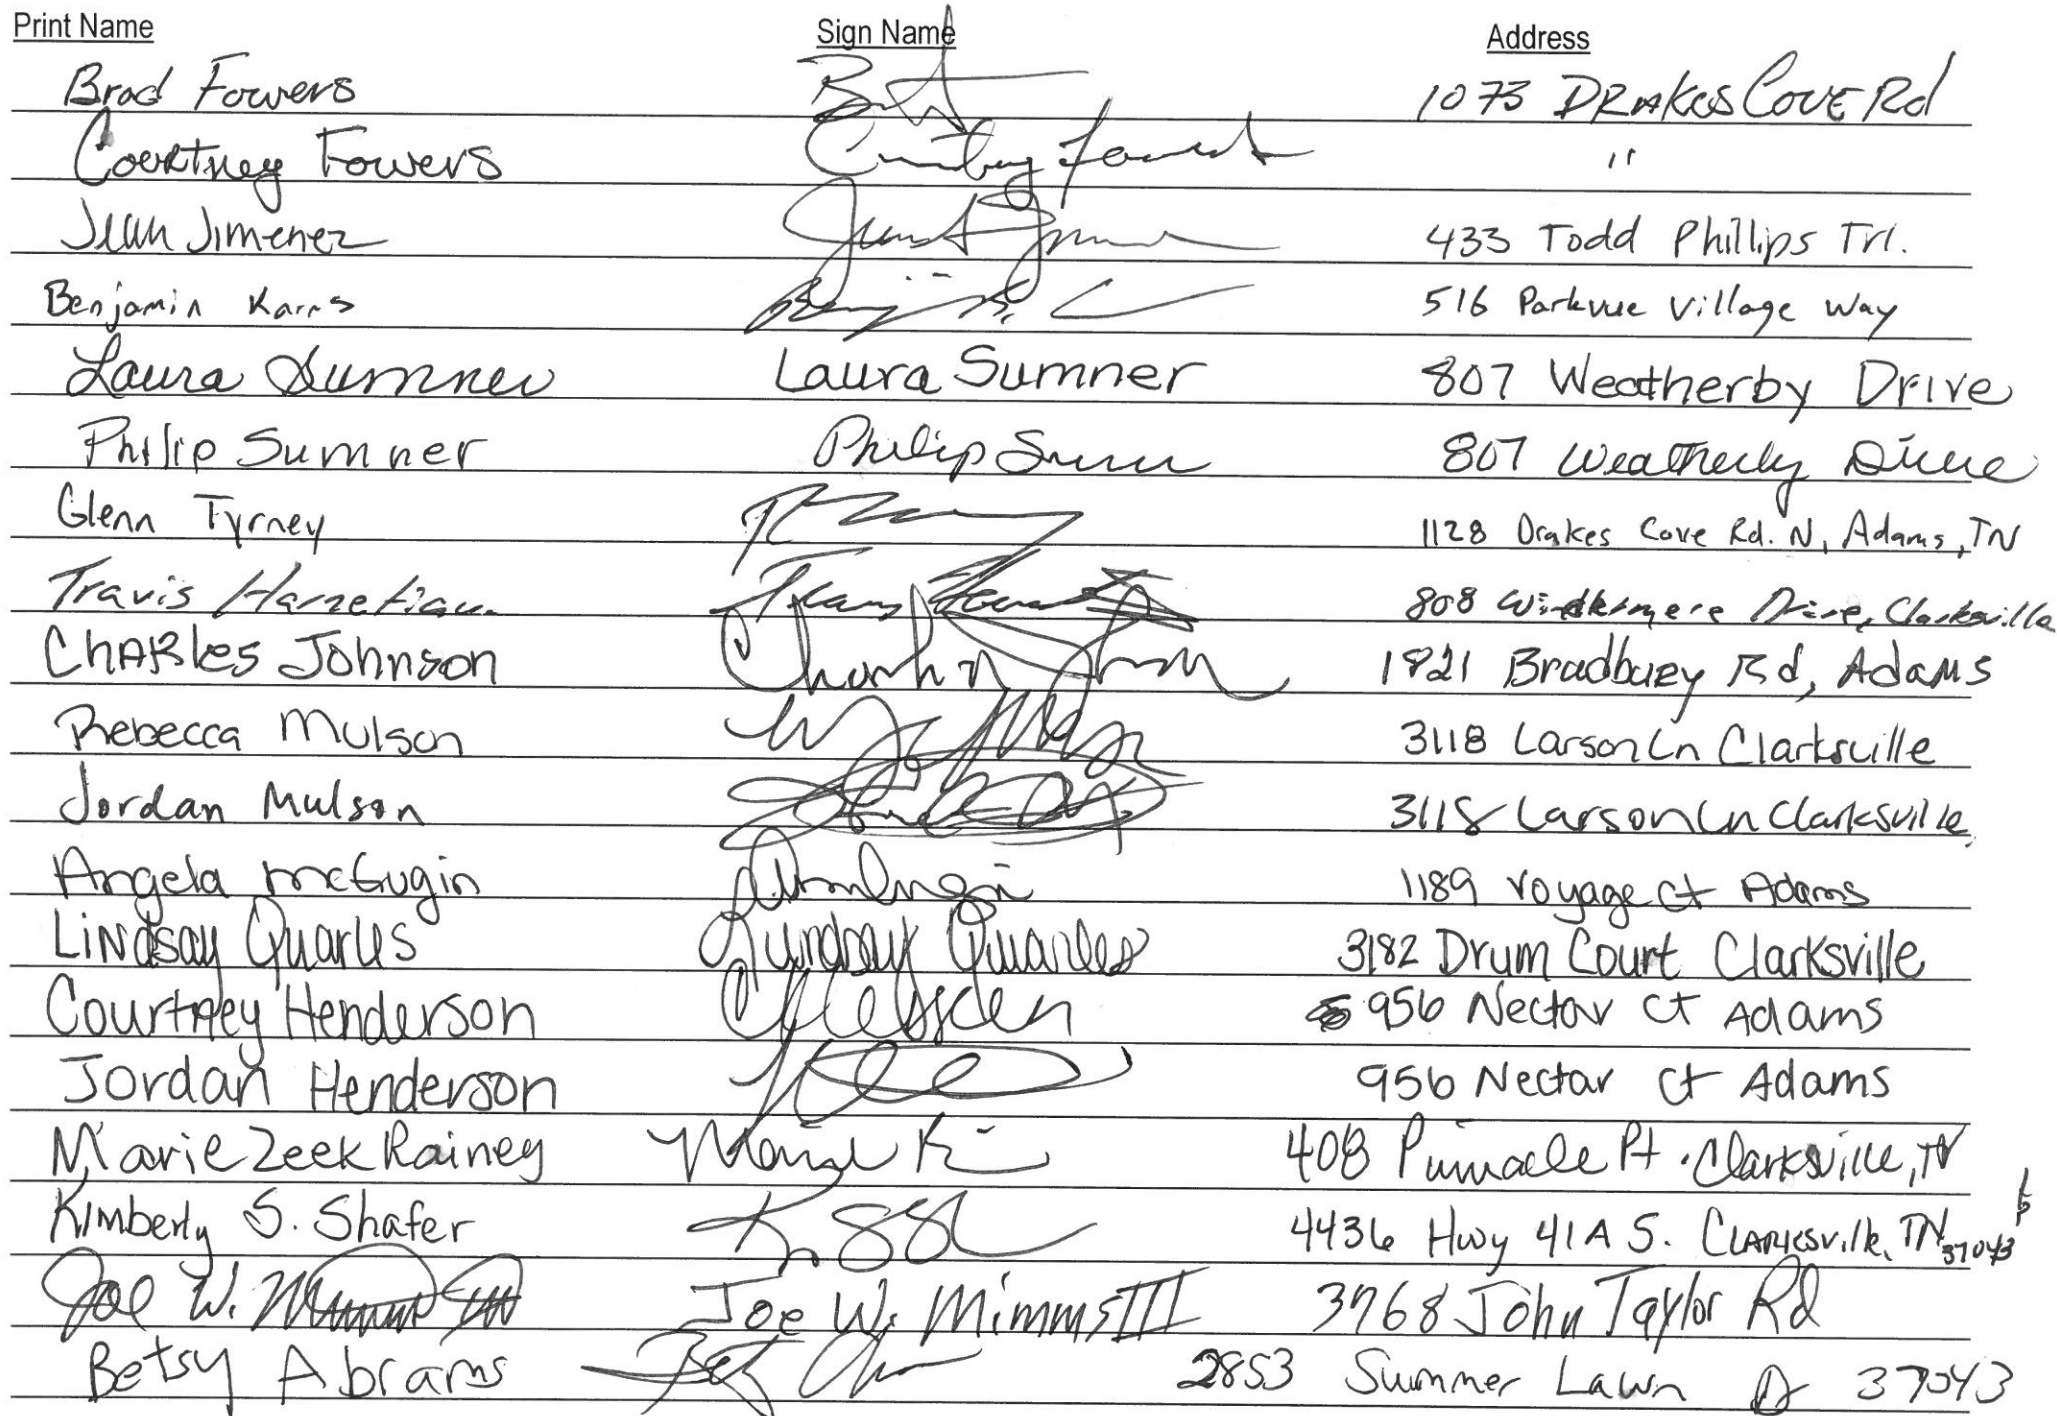 Print Name Sign Name Address
Brad Fowers 1073 DRAKES COVE Rd
Courtney Fowers Courtney Fowers "
Juan Jimenez 433 Todd Phillips Trl.
Benjamin Karns 516 Parkvue Village Way
Laura Sumner Laura Sumner 807 Weatherby Drive
Philip Sumner Philip Sumner 807 Weatherby Drive
Glenn Tyrney 1128 Drakes Cove Rd. N, Adams, TN
Travis 808 Windermere Drive, Clarksville
CHARles Johnson 1821 Bradbury Rd, Adams
Rebecca Mulson 3118 Larson Ln Clarksville
Jordan Mulson 3118 Larson Ln Clarksville
Angela McGugin 1189 Voyage Ct Adams
Lindsay Quarles Lindsay Quarles 3182 Drum Court Clarksville
Courtney Henderson 956 Nectar Ct Adams
Jordan Henderson 956 Nectar Ct Adams
Marie Zeek Rainey 408 Pinnacle Pt. Clarksville, TN
Kimberly S. Shafer 4436 Hwy 41A S. Clarksville, TN 37043
Joe W. Joe W. Mimms III 3768 John Taylor Rd
Betsy Abrams 2853 Summer Lawn 37043